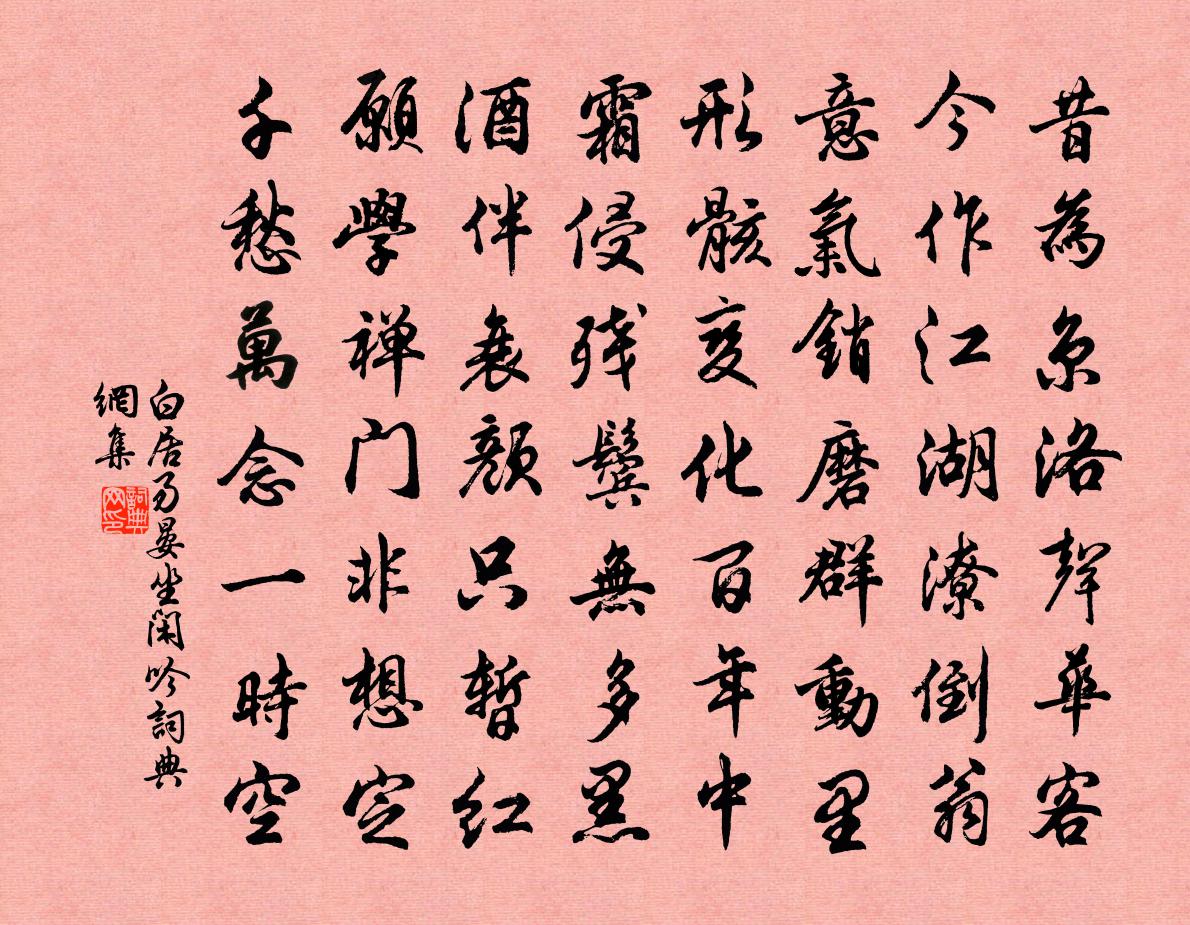 昔為京洛聲華客
今作江湖潦倒翁
意氣銷磨群動里
形骸变化百年中
霜侵残鬓無多黑
酒伴衰顏只暫红
願學禅门非想定
千愁萬念一時空
白居易晏坐閑吟詞典
網集
詞典
网印